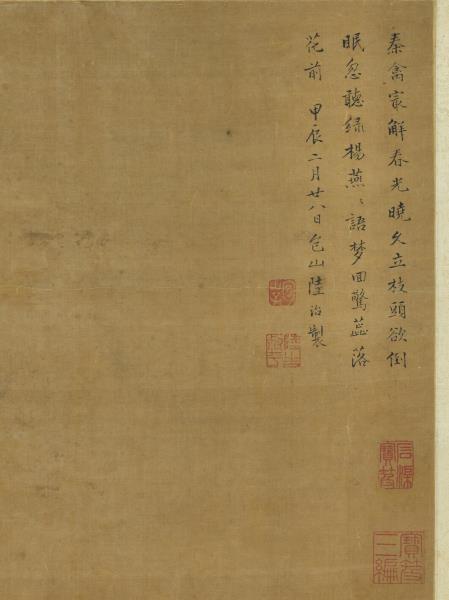 秦禽㝡解春光曉久立枝頭欲倒
眠忽聽綠楊燕〻語梦囬驚蕊落
花前 甲辰二月廿八日包山陸治製
石渠寶笈
寶笈三編